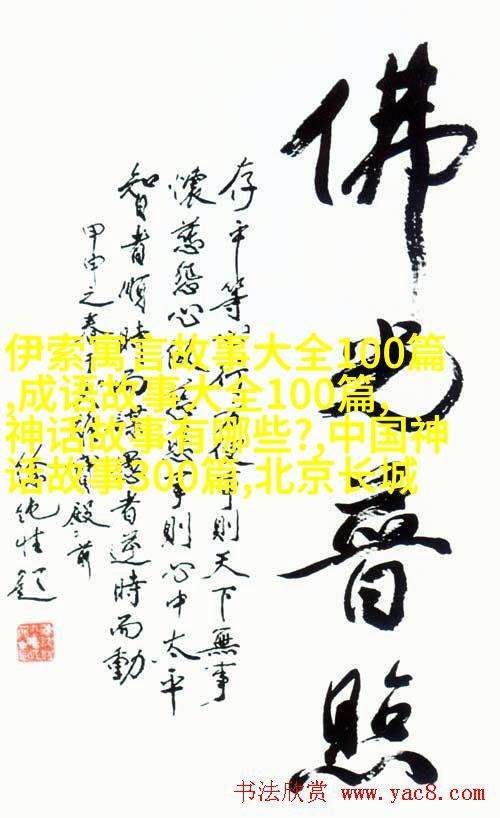 佛光普照
存平等心行方便事則天下無事
懷慈悲心做慈悲事則心中太平
智者順時而謀愚者逆時而動
甲申之春于
殿前
題
伊索寓言故事大全100篇
,成语故事大全100篇,
神话故事有哪些?,中国神
话故事300篇,北京长城
书法欣赏 www.yac8.com